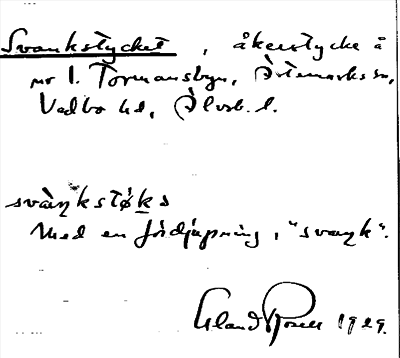 Svankstycket, åkerstycke å
nr 1. Tormansbyn, Ärtemarks sn,
Vedbo hd, Älvsb. l.
svàŋkstø̀ks
Med en fördjupning, "svaŋk".
Erland Rosell 1929.